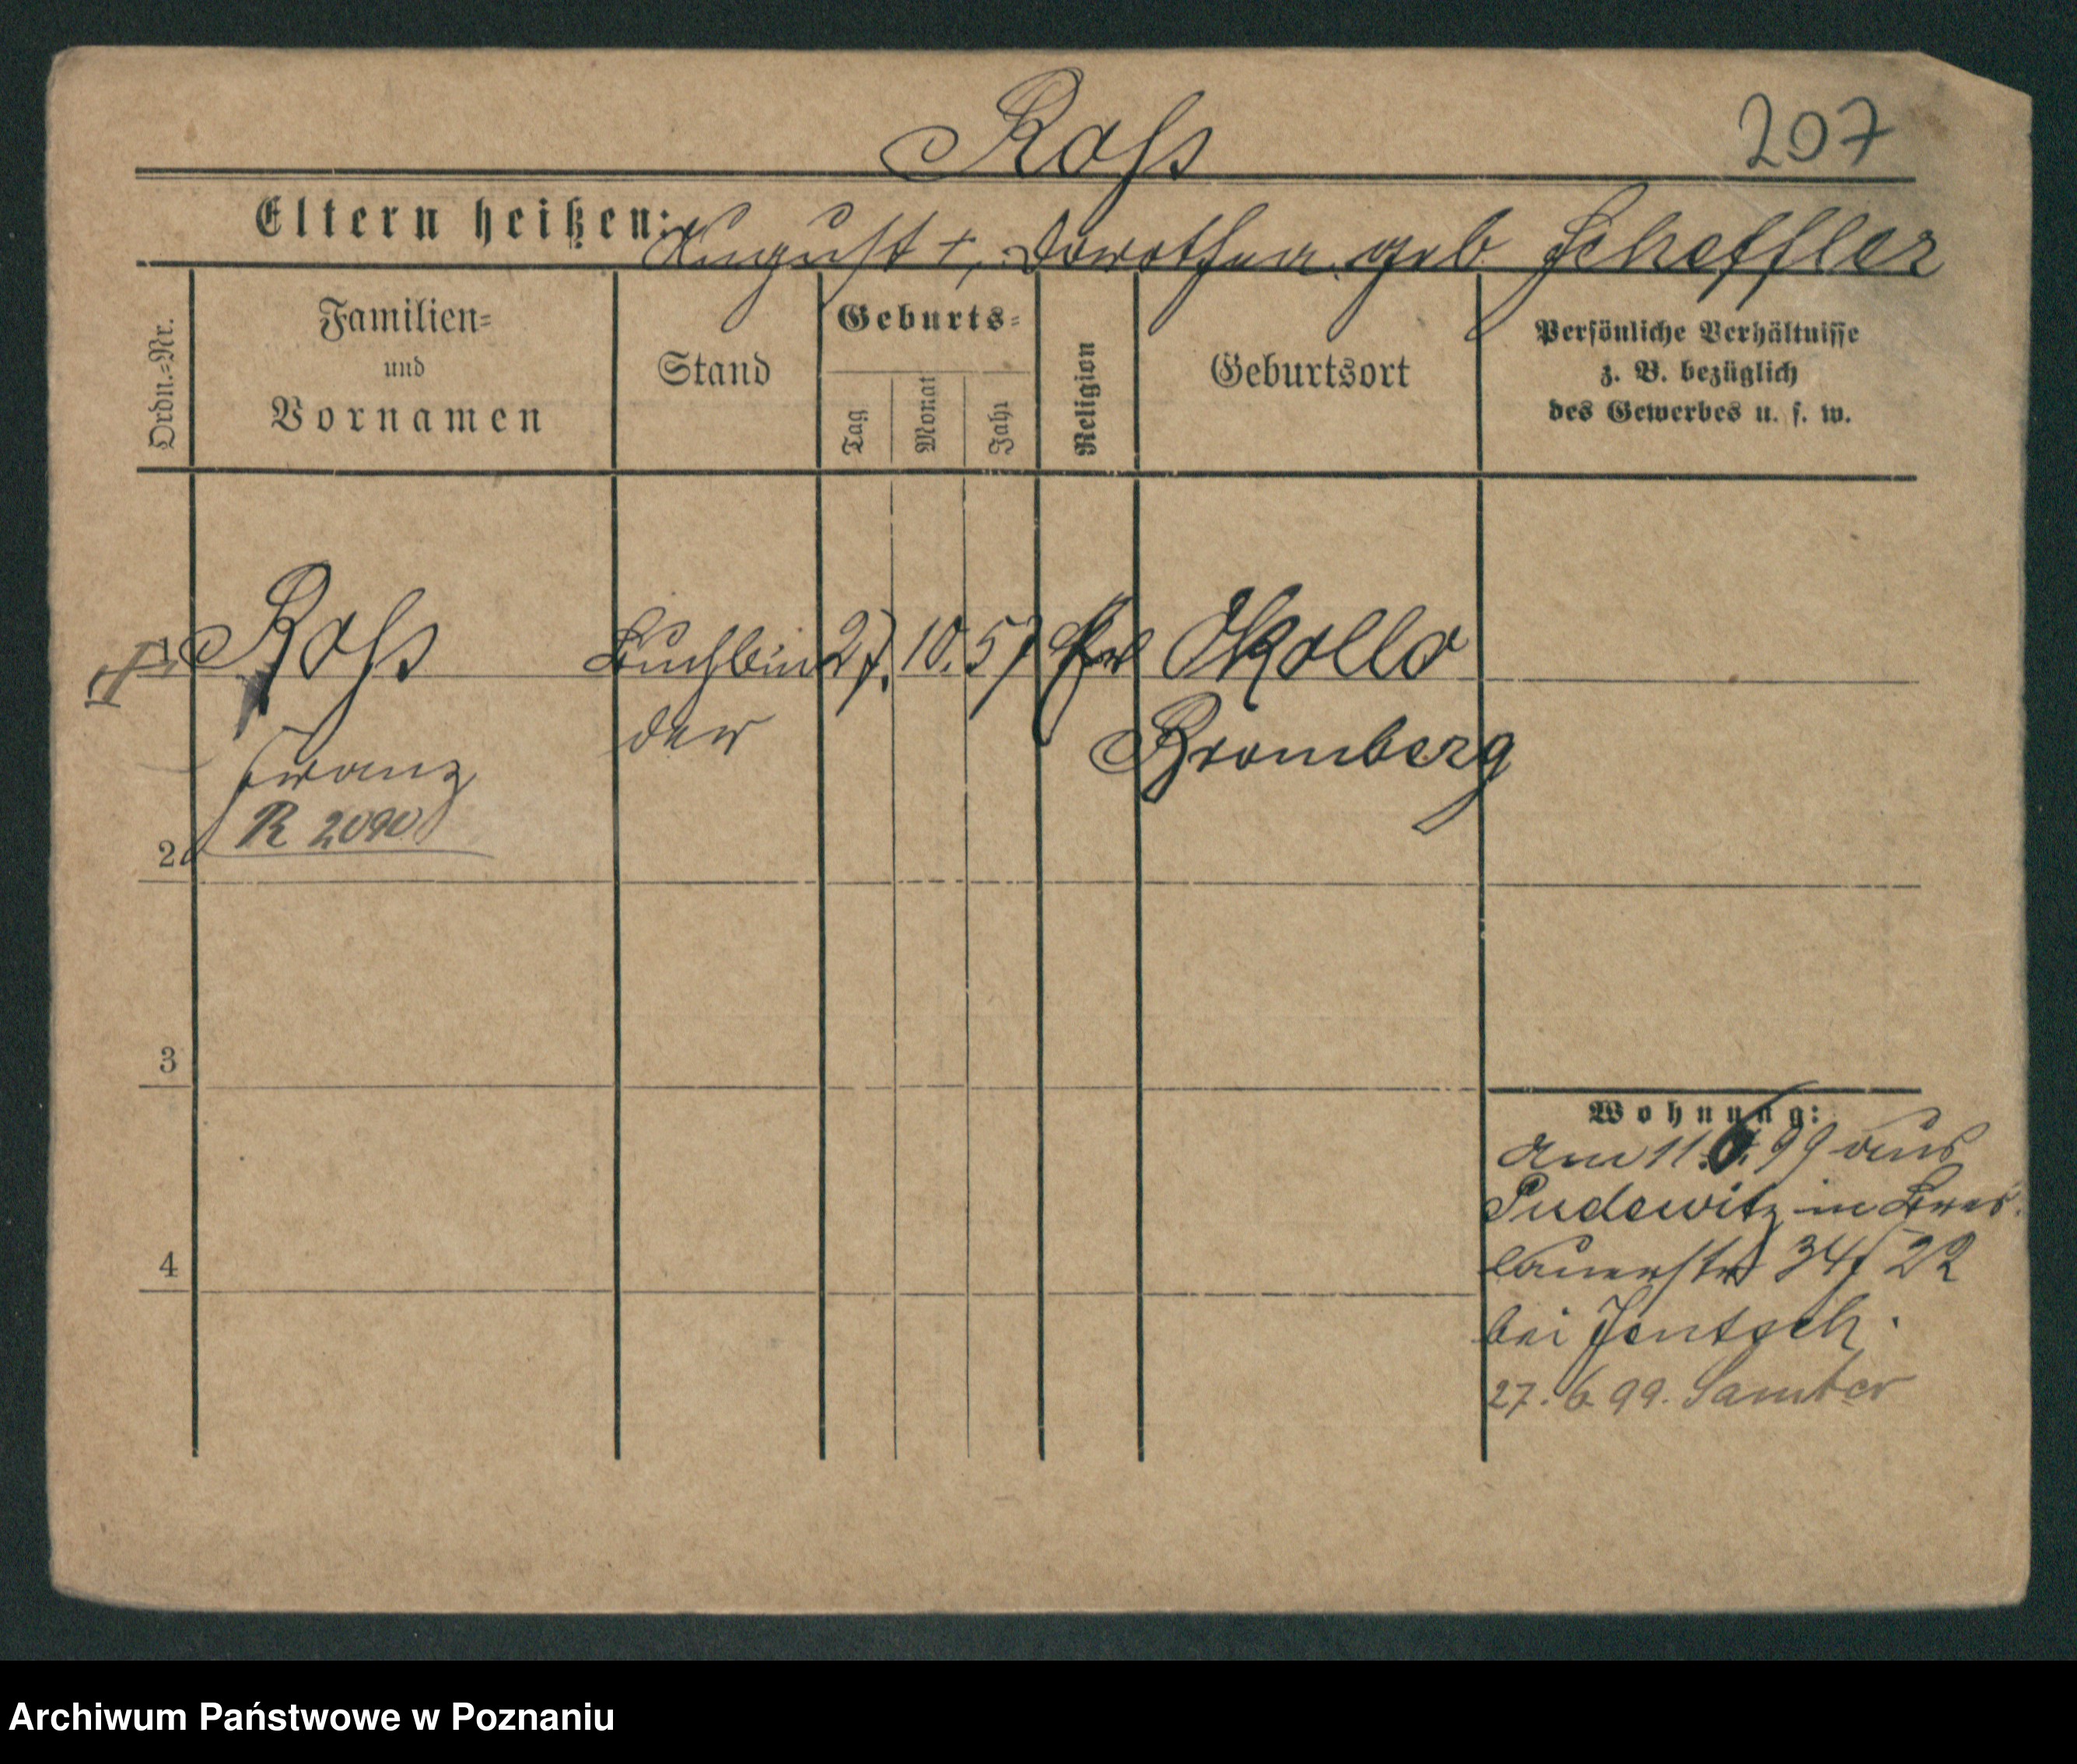 Roſs
207
Eltern heißen: August +, Dorothea geb Scheffler
Ordn.=Nr.
Familien=
und
Vornamen
Stand
Geburts=
Tag
Monat
Jahr
Religion
Geburtsort
Persönliche Verhältnisse
z. B. bezüglich
des Gewerbes u. s. w.
1
Roſs
Buchbin
27. 10. 57
Okollo
der
Bromberg
Franz
R 2090
2
3
4
Wohnung:
am 11. 6. 99 aus
Pudewitz in Bres
lauerstr 34/ 22
bei Jentsch.
27. 6 99. Samter
Archiwum Państwowe w Poznaniu